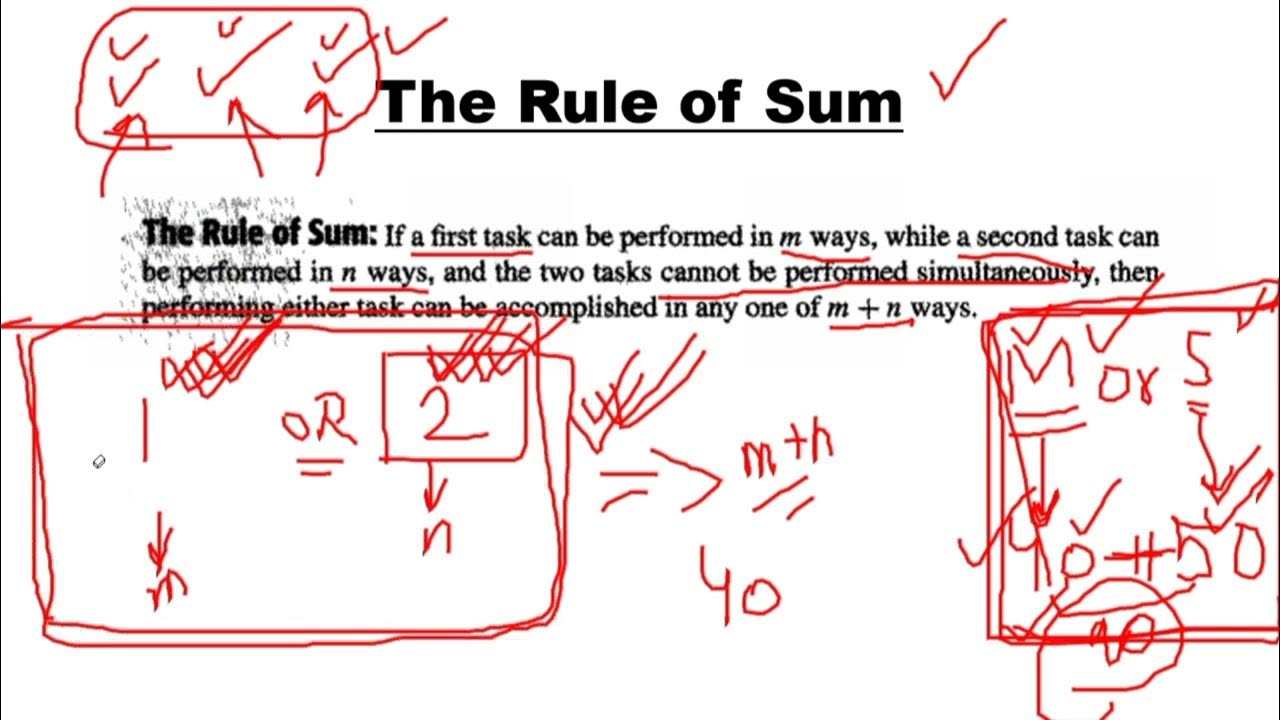 The Rule of Sum
The Rule of Sum: If a first task can be performed in m ways, while a second task can
be performed in n ways, and the two tasks cannot be performed simultaneously, then
performing either task can be accomplished in any one of m + n ways.
1 OR 2 => m+n
m n
40
M or S
40+50
90